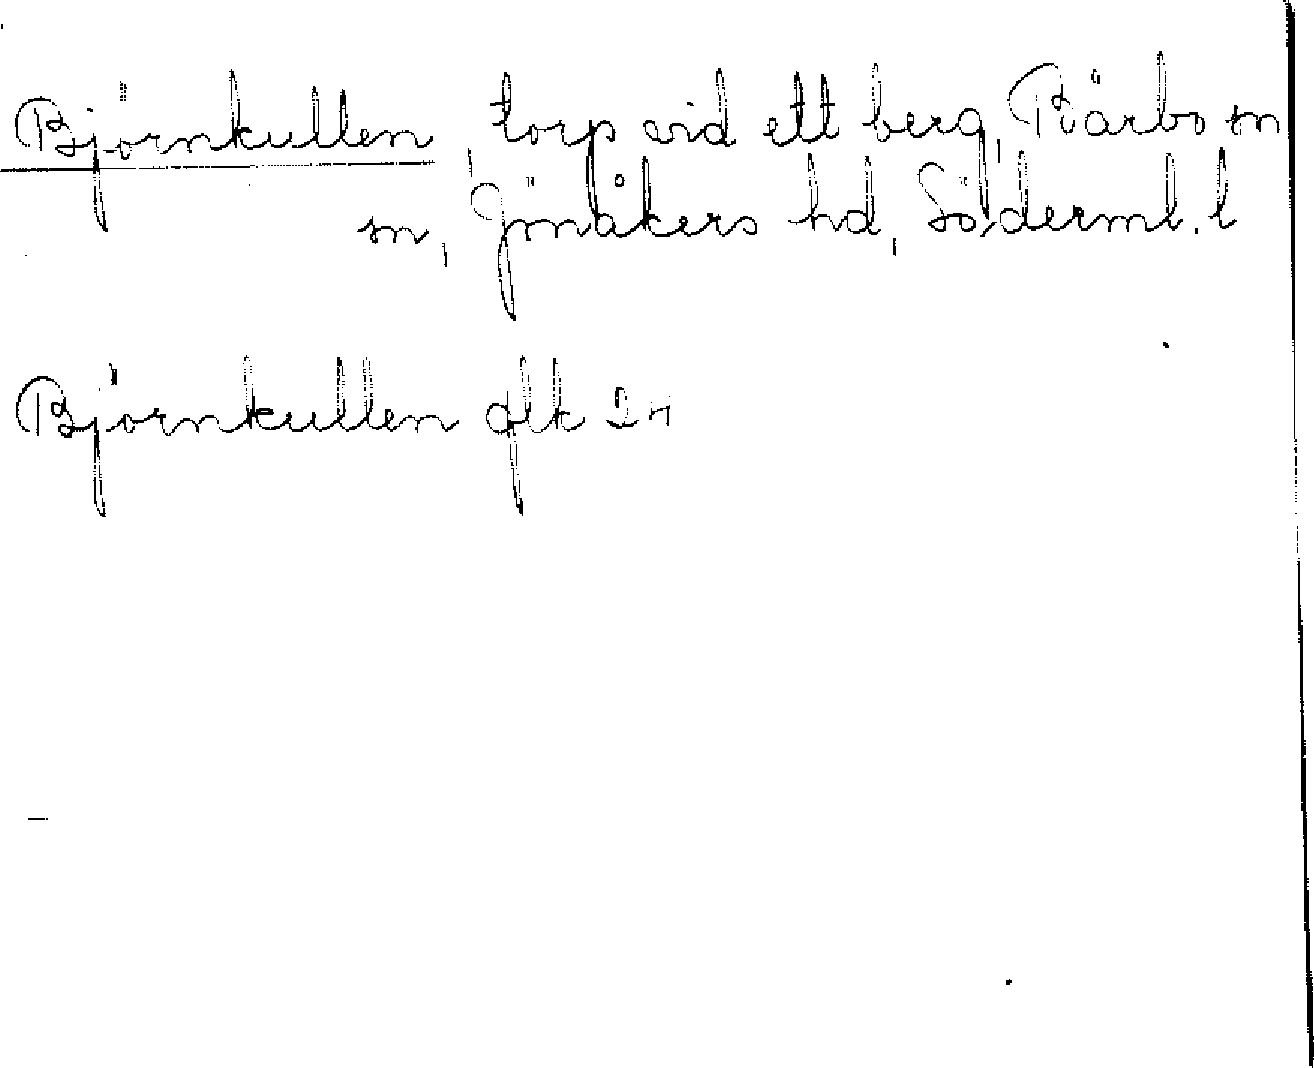 Björnkullen, torp vid ett berg, Råby sn
sn, Jönåkers hd, Söderml. l
Björnkullen glk 24